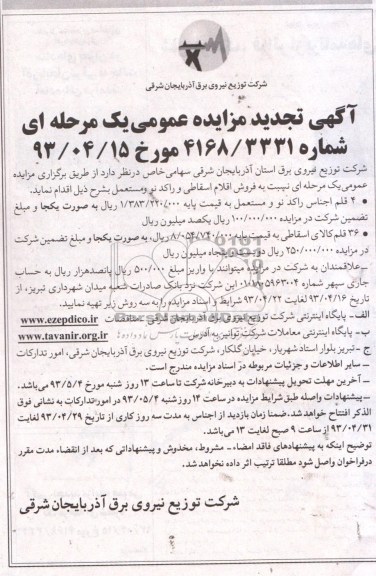 شرکت توزیع نیروی برق آذربایجان شرقی
آگهی تجدید مزایده عمومی یک مرحله ای
شماره ۴۱۶۸/۳۳۳۱ مورخ ۹۳/۰۴/۱۵
شرکت توزیع نیروی برق استان آذربایجان شرقی سهامی خاص درنظر دارد از طریق برگزاری مزایده
عمومی یک مرحله ای نسبت به فروش اقلام اسقاطی و راکد نو ومستعمل بشرح ذیل اقدام نماید.
● ۴ قلم اجناس راکد نو و مستعمل به قیمت پایه ۱/۳۸۳/۲۲۰/۰۰۰ ریال به صورت یکجا و مبلغ
تضمین شرکت در مزایده ۱۰۰/۰۰۰/۰۰۰ ریال یکصد میلیون ریال
● ۳۶ قلم کالای اسقاطی به قیمت پایه ۸/۰۵۴/۷۴۰/۰۰۰ ریال، به صورت یکجا و مبلغ تضمین شرکت
در مزایده ۲۵۰/۰۰۰/۰۰۰ ریال دویست و پنجاه میلیون ریال
ــ علاقمندان به شرکت در مزایده میتوانند با واریز مبلغ ۵۰۰/۰۰۰ ریال پانصدهزار ریال به حساب
جاری سپهر شماره ۰۱۰۱۸۰۵۹۶۳۰۰۴ این شرکت نزد بانک صادرات شعبه میدان شهرداری تبریز، از
تاریخ ۹۳/۰۴/۱۶ لغایت ۹۳/۰۴/۲۲ شرایط و اسناد مزایده را به سه روش زیر تهیه نمایید.
الف - پایگاه اینترنتی شرکت توزیع نیروی برق آذربایجان شرقی www.ezepdico.ir
ب - پایگاه اینترنتی معاملات شرکت توانیر به آدرس www.tavanir.org.ir
ج - تبریز بلوار استاد شهریار، خیابان گلکار، شرکت توزیع نیروی برق آذربایجان شرقی، امور تدارکات
ــ سایر اطلاعات و جزئیات مربوطه در اسناد مزایده مندرج است.
ــ آخرین مهلت تحویل پیشنهادات به دبیرخانه شرکت تا ساعت ۱۳ روز شنبه مورخ ۹۳/۵/۴ می‌باشد.
ــ پیشنهادات واصله طبق شرایط مزایده در ساعت ۱۴ روزشنبه ۹۳/۰۵/۴ در امور تدارکات به نشانی فوق
الذکر افتتاح خواهد شد. ضمنا زمان بازدید از اجناس به مدت سه روز کاری از تاریخ ۹۳/۰۴/۲۹ لغایت
۹۳/۰۴/۳۱ از ساعت ۹ صبح لغایت ۱۳ می‌باشد.
توضیح اینکه به پیشنهادهای فاقد امضاء - مشروط، مخدوش و پیشنهاداتی که بعد از انقضاء مدت مقرر
درفراخوان واصل شود مطلقا ترتیب اثر داده نخواهد شد.
شرکت توزیع نیروی برق آذربایجان شرقی